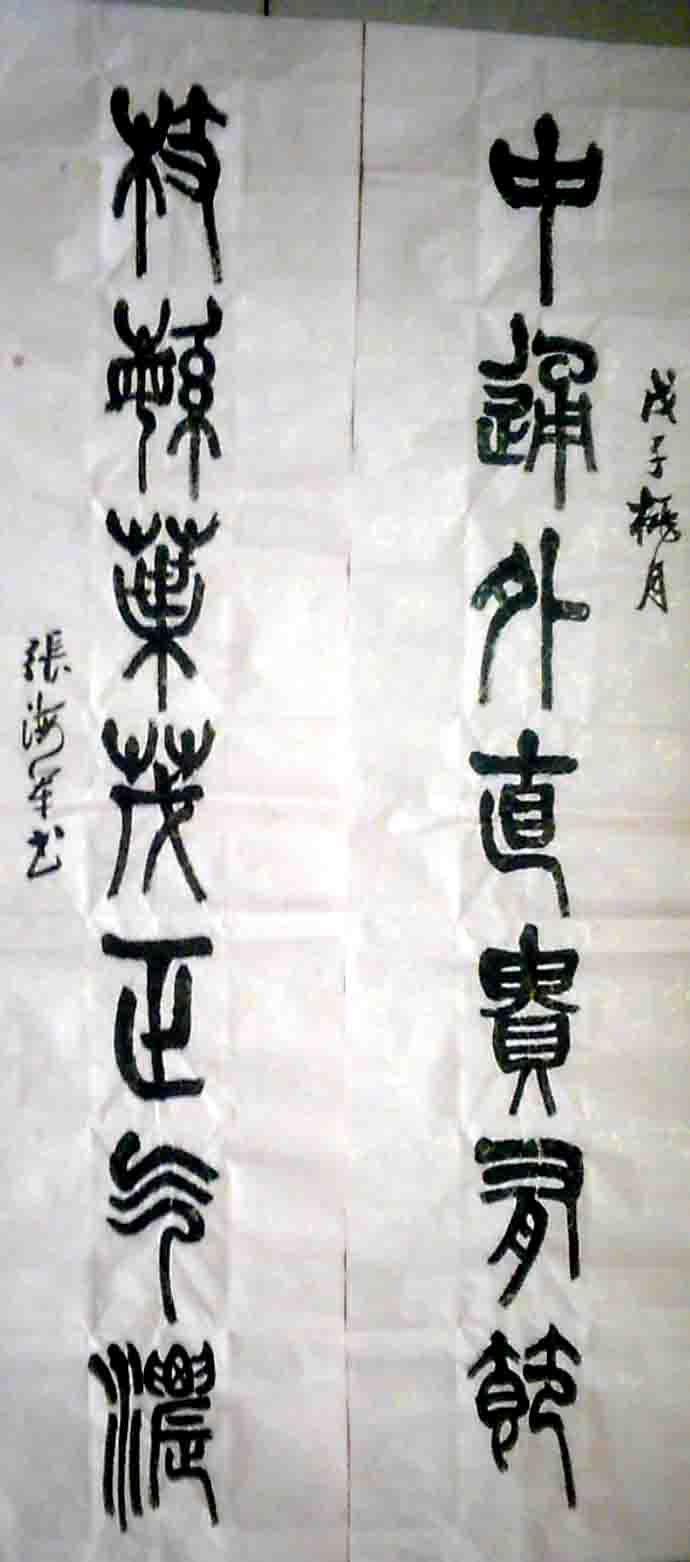 戊子桃月
中通外直貴有節
枝緐葉茂正气濃
張海军书